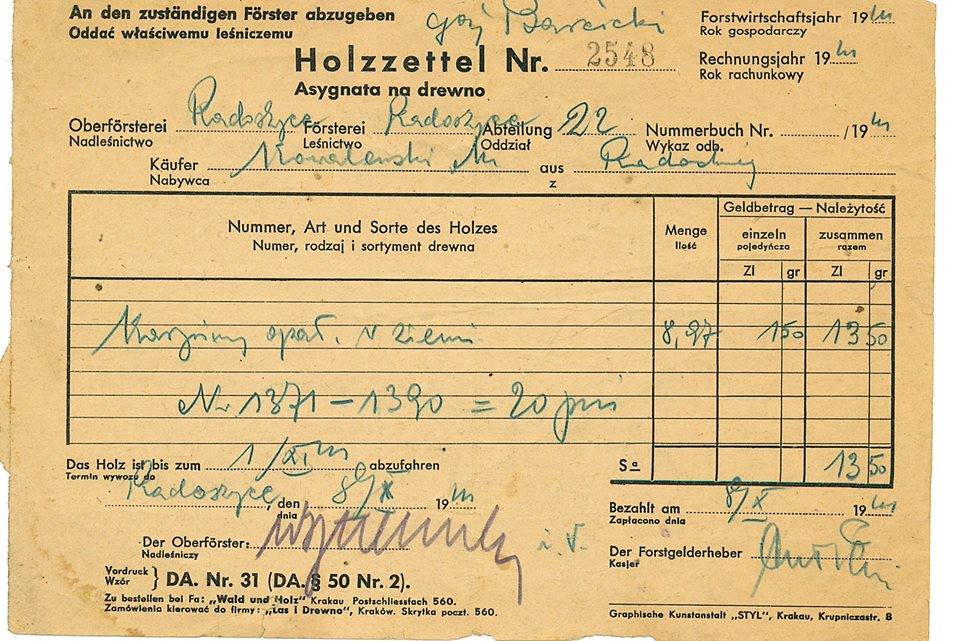 An den zuständigen Förster abzugeben
Oddać właściwemu leśniczemu
Forstwirtschaftsjahr 19
Rok gospodarczy
Holzzettel Nr. 2548
Asygnata na drewno
Rechnungsjahr 19
Rok rachunkowy
Oberförsterei Radoszyce Försterei Radoszyce Abteilung 22 Nummerbuch Nr. /19
Nadleśnictwo Leśnictwo Oddział Wykaz odb.
Käufer Kowalewski aus
Nabywca z
Nummer, Art und Sorte des Holzes
Numer, rodzaj i sortyment drewna
Menge
Ilość
Geldbetrag — Należytość
einzeln zusammen
pojedyńcza razem
Zl gr Zl gr
opał. w ziemi 8,97 1 50 13 50
Nr 1371 – 1390 = 20 pni
Das Holz ist bis zum 1/XI abzufahren
Termin wywozu do
Sa 13 50
Radoszyce, den 8/X 19
dnia
Bezahlt am 8/X 19
Zapłacono dnia
Der Oberförster: i.V.
Nadleśniczy
Der Forstgelderheber
Kasjer
Vordruck
Wzór } DA. Nr. 31 (DA. § 50 Nr. 2).
Zu bestellen bei Fa: „Wald und Holz" Krakau Postschliessfach 560.
Zamówienia kierować do firmy: „Las i Drewno", Kraków. Skrytka poczt. 560.
Graphische Kunstanstalt „STYL", Krakau, Krupniczastr. 8